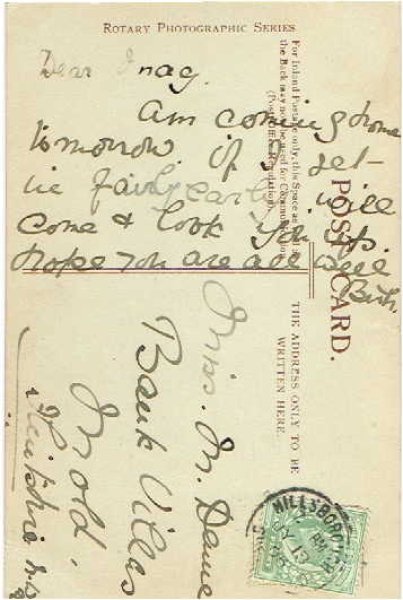 ROTARY PHOTOGRAPHIC SERIES
Dear
Am coming home
tomorrow if I get
in fairly early will
come & look you up.
hope you are all well
For Inland Postage only, this Space as well as
the Back may now be used for Communication.
(Post Office Regulation).
POST CARD.
THE ADDRESS ONLY TO BE
WRITTEN HERE.
Miss. M.
Bank Villas
Mold.
Flintshire
HILLSBORO